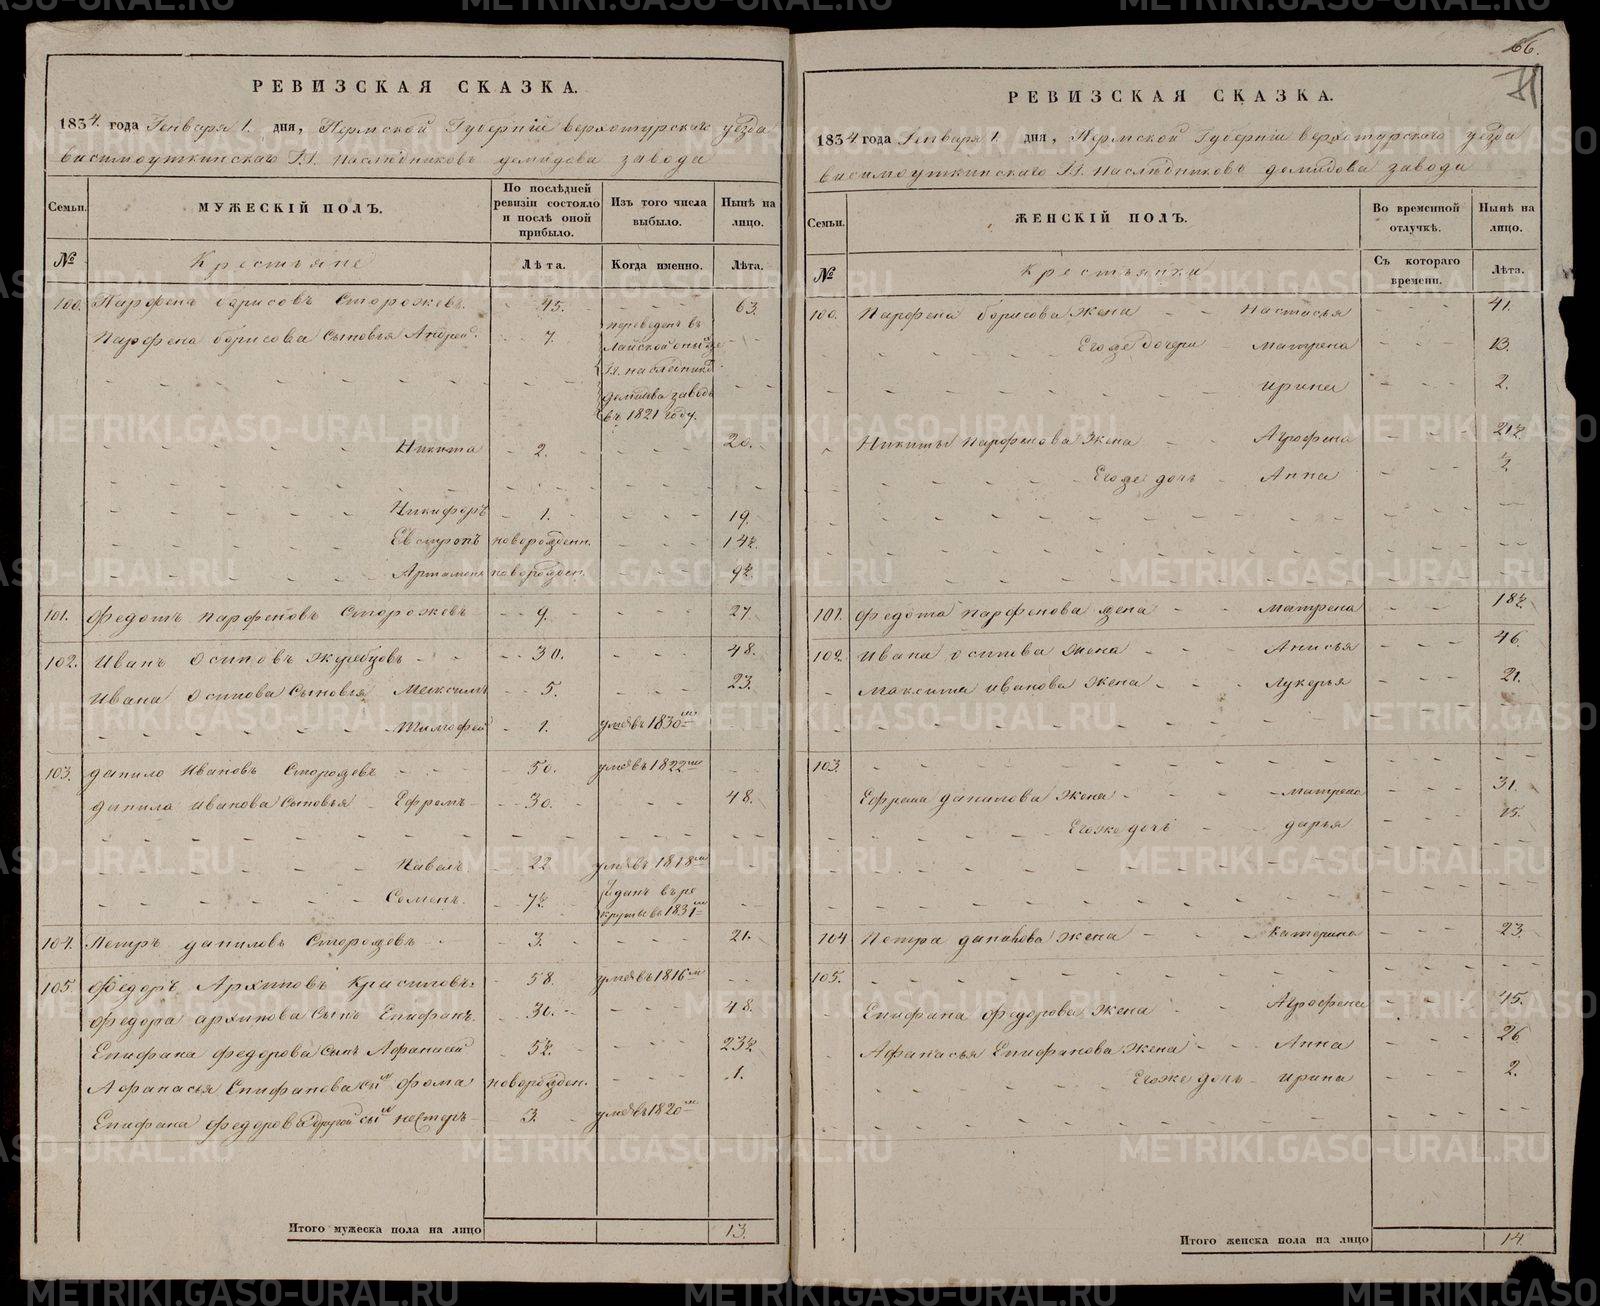 66.
РЕВИЗСКАЯ СКАЗКА.
1834. года Генваря 1. дня, Пермской Губерніи верхотурскаго уезда
висимоуткинскаго Н. наследниковъ демидова завода
Семьи.
МУЖЕСКІЙ ПОЛЪ.
По послѣдней ревизіи состояло и послѣ оной прибыло.
Изъ того числа выбыло.
Нынѣ на лицо.
№
Крестьяне
Лѣта.
Когда именно.
Лѣта.
100. Парфенъ борисовъ Сторожевъ. 45. 63.
Парфена борисова Сыновья Андрей 7. переведенъ въ
Лайской оныхже
Н. наследник
демидова заводъ
въ 1821 году.
Никита 2. 20.
Никифоръ 1. 19.
Евстропъ новорожденн. 14½
Артамонъ новорожден. 9½
101. Федотъ Парфеновъ Сторожевъ 9. 27
102. Иванъ Осиповъ Жеребцовъ 30. 48.
Ивана Осипова Сыновья Максимъ 5. 23.
Тимофей 1. умре въ 1830м
103. данило Ивановъ Сторожевъ 50. умре въ 1822м
данила иванова Сыновья Ефремъ 30. 48.
Павелъ. 22 умре въ 1818м
Семенъ. 7½ Отданъ въ ре
круты въ 1831м
104. Петръ даниловъ Сторожевъ 3. 21.
105. Федоръ Архиповъ Красиловъ. 58. умре въ 1816м
Федора архипова Сынъ Епифанъ. 30. 48.
Епифана федорова Сынъ Афанасей 5½ 23½
Афанасья Епифанова сынъ фома новорожден. 1.
Епифана федорова другой сынъ нестеръ 3. умре въ 1820м
Итого мужеска пола на лицо 13.
РЕВИЗСКАЯ СКАЗКА.
1834 года Генваря 1. дня, Пермской Губерніи верхотурскаго уезда
висимоуткинскаго Н. наследниковъ демидова завода
Семьи.
ЖЕНСКІЙ ПОЛЪ.
Во временной отлучкѣ.
Нынѣ на лицо.
№
Крестьянки
Съ котораго времени.
Лѣта.
100. Парфена борисова жена Настасья 41.
Егоже дочери Матрена 13.
ирина 2.
Никиты парфенова жена Агрофена 21½
Егоже дочь Анна ½
101. федота парфенова жена Матрена 18½
102. ивана осипова жена Анисья 46.
Максима иванова жена Лукерья 21.
103.
Ефрема данилова жена матрена 31.
Егоже дочь дарья 15.
104 Петра данилова жена катерина 23.
105.
Епифана федорова жена Агрофена 45.
Афанасья Епифанова жена Анна 26
Егоже дочь ирина 2.
Итого женска пола на лицо 14.
METRIKI.GASO-URAL.RU